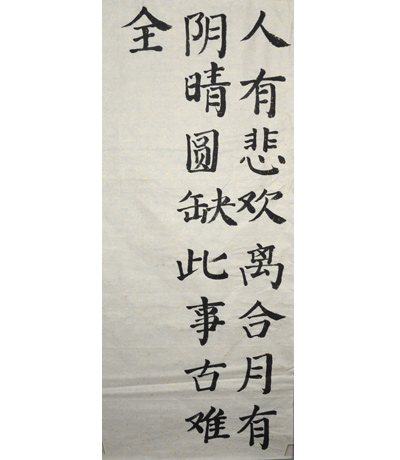 人有悲欢离合月有
阴晴圆缺此事古难
全